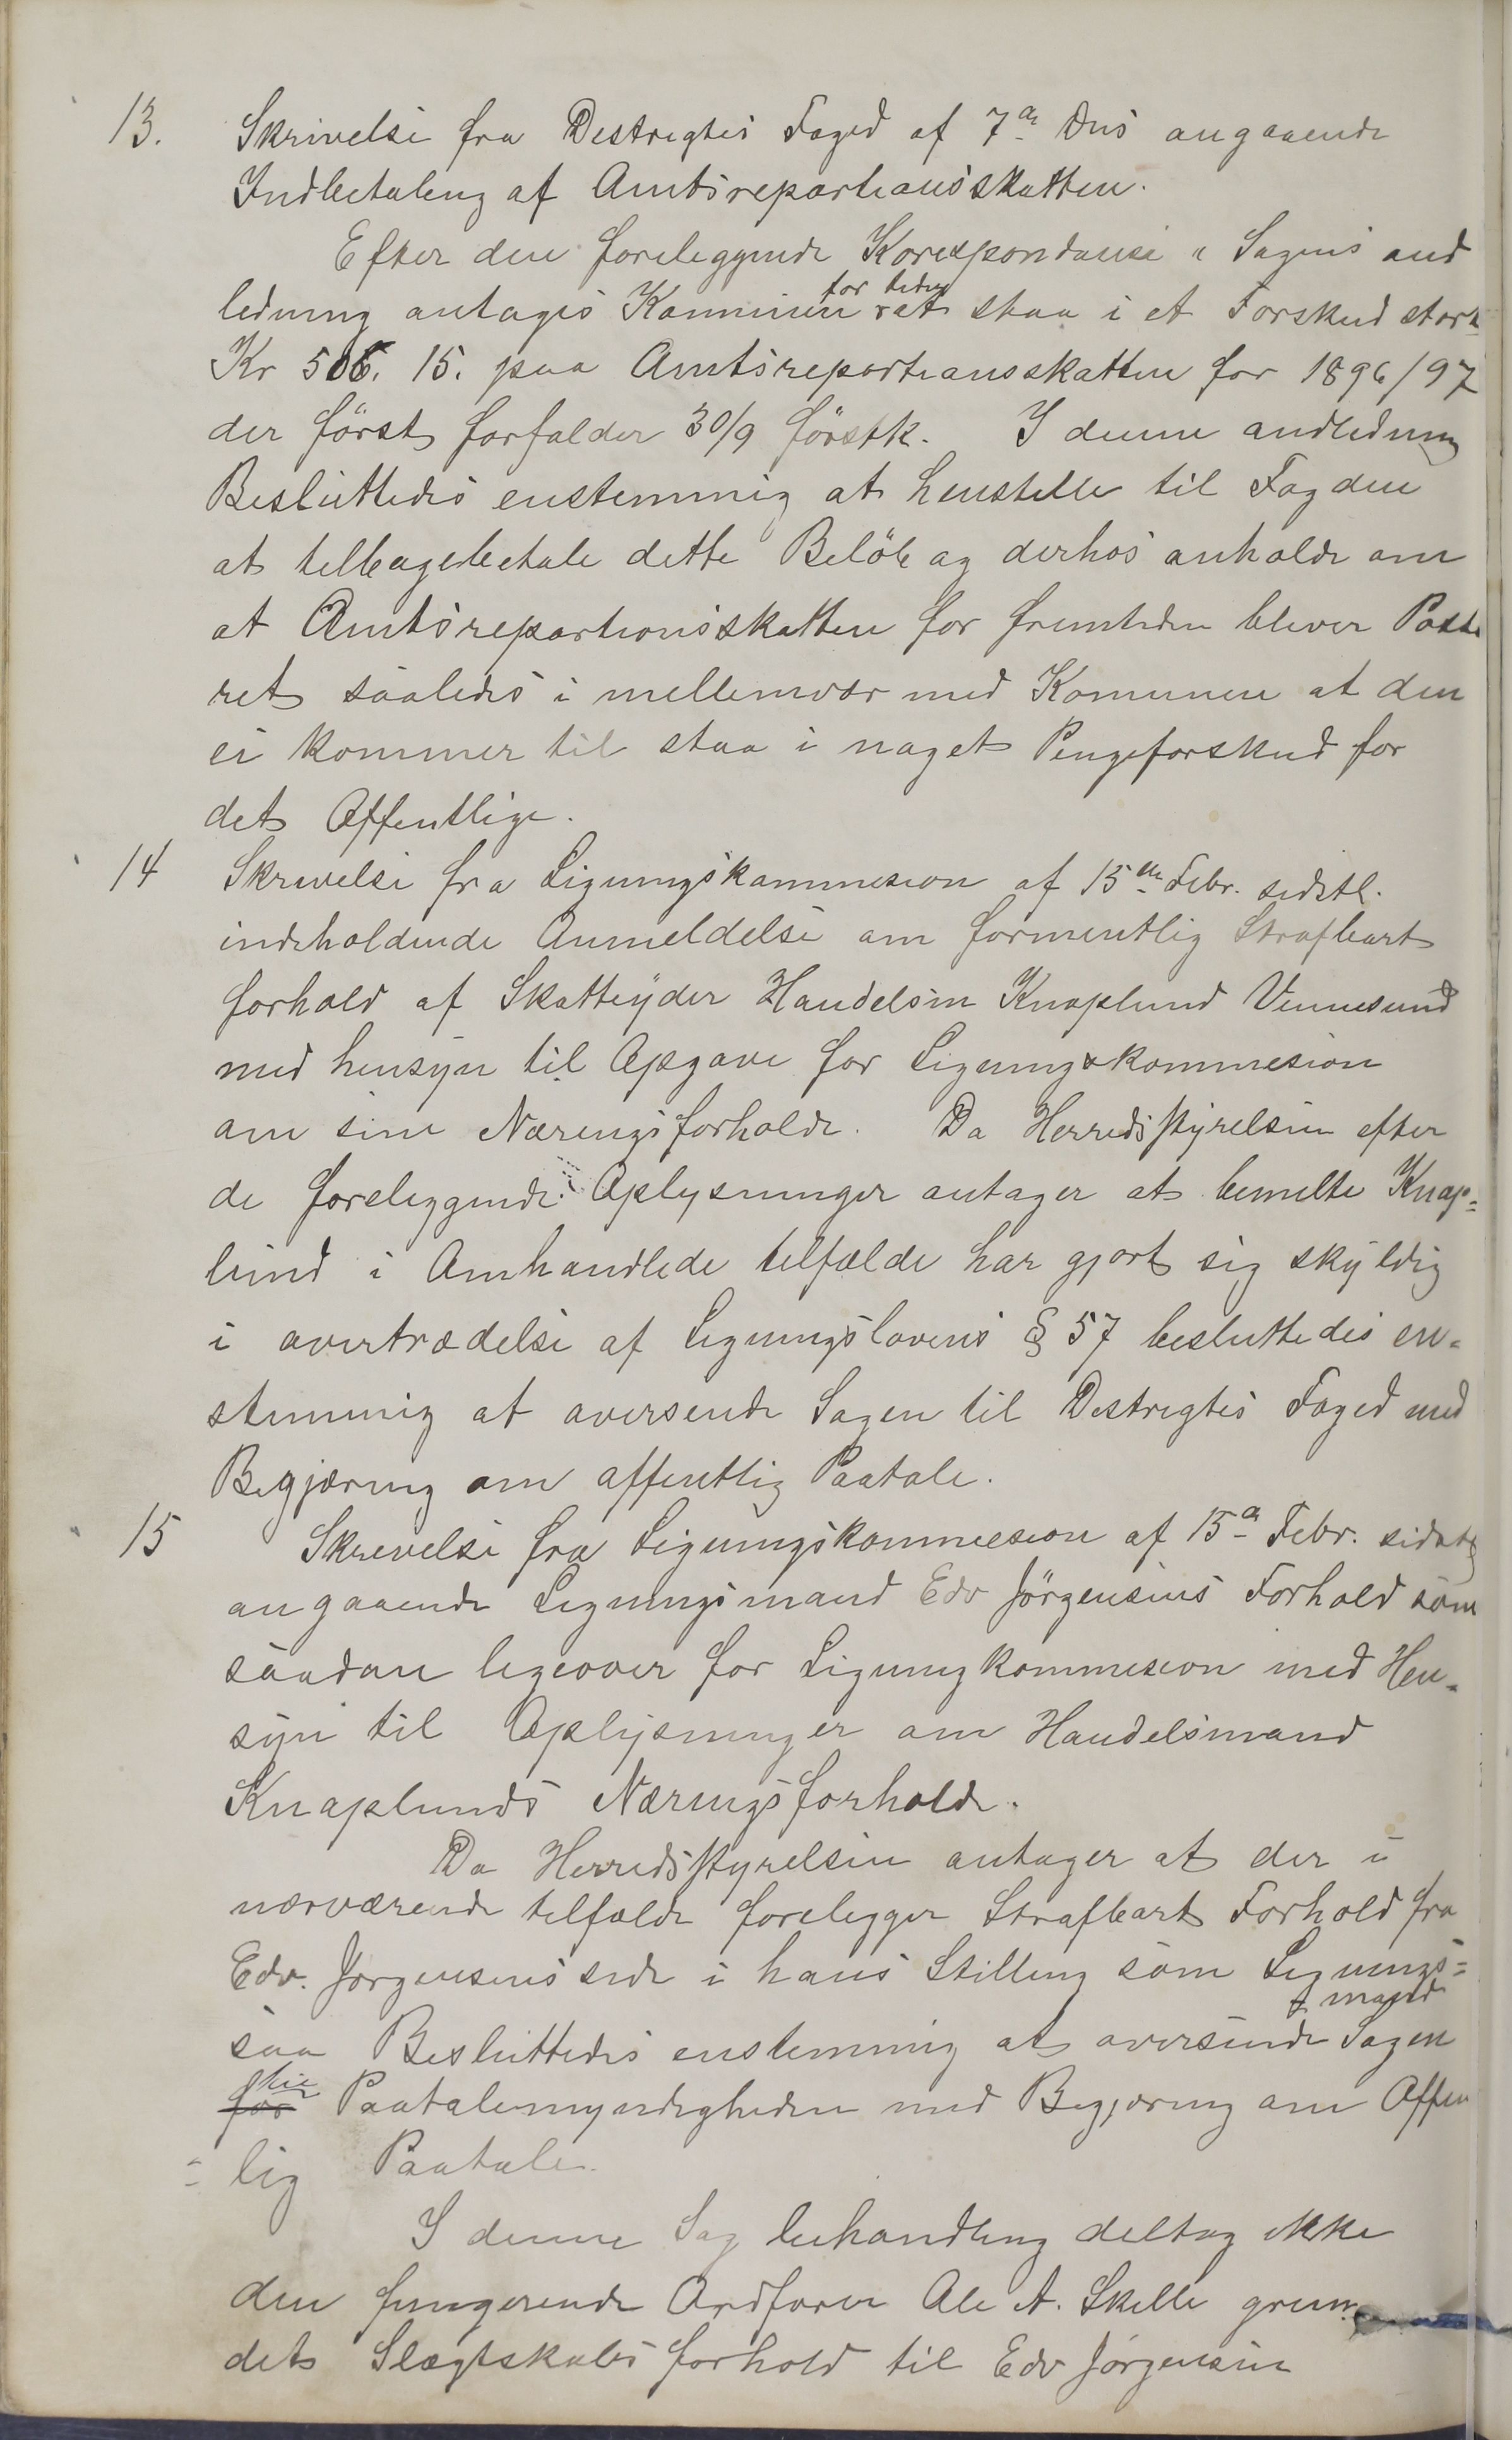 13. Skrivelse fra Destrigtes Foged af 7de Dns angaaende
Indbetaleng af Amtsrepartionsskatten.
Efter den foreleggende Korespondanse i Sagens and
ledning antages Kommunen for teden at staa i et Forskud stort
Kr 506. 15. paa Amtsrepartionsskatten for 1896/97
der först forfalder 30/9 förstk. I denne andledning
Besluttedes enstemmig at henstelle til Fogden
at telbagebetale dette Belöb og derhos anholde om
at Amtsrepartionsskatten for fremteden blever Poste
ret saaledes i mellemvær med Komunen at den
ei kommer til staa i noget Pengeforskud for
det Offentlige.
14 Skrivelse fra Ligningskommesion af 15de Febr. sidstl.
indeholdende Anmeldelse om formentlig Strafbart
forhold af Skatteyder Handelsm Knaplund Vennesund
med hensyn til Opgave for Ligningskommesion
om sine Næringsforholde. Da Herredsstyrelsen efter
de foreleggende Oplysninger antager at bemelte Knap=
lund i Omhandlede telfælde har gjort sig skyldig
i overtrædelse af Ligningslovens § 57 besluttedes en=
stemmig at oversende Sagen til Destrigtes Foged med
Begjæring om offentlig Paatale.
15 Skrevelse fra Ligningskommesion af 15de Febr. sidstl
angaaende Ligningsmand Edv Jörgensens Forhold som
saadan legeover for Ligningkommesion med Hen=
syn til Oplysninger om Handelsmand
Knaplunds Næringsforholde.
Da Herredsstyrelsen antager at der i
nærværende telfælde forelegger Strafbart Forhold fra
Edv. Jörgensens side i hans Stilleng som Lignings=
mand
saa Besluttedes enstemmig at oversende Sagen
for til Paatalemyndegheden med Begjæring om Offen
=lig Paatale.
I denne Sag behandleng deltog ikke
den fungerende Ordförer Ole A. Skille grun
det Slægtskabs forhold til Edv Jörgensen